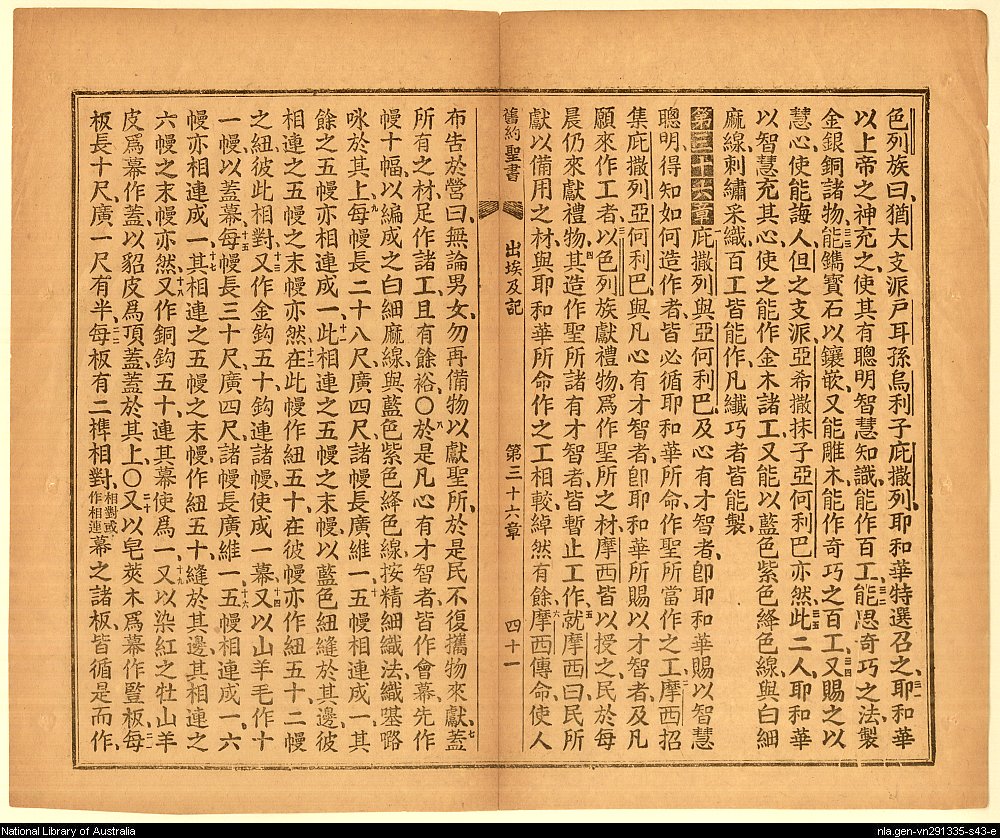 色列族曰猶大支派戶耳孫烏利子庇撒列耶和華特選召之三一耶和華
以上帝之神充之使其有聰明智慧知識能作百工三二能思奇巧之法製
金銀銅諸物三三能鐫寶石以鑲嵌又能雕木能作奇巧之百工三四又賜之以
慧心使能誨人但之支派亞希撒抹子亞何利巴亦然三五此二人耶和華
以智慧充其心使之能作金木諸工又能以藍色紫色絳色線與白細
麻線刺繡采織百工皆能作凡纖巧者皆能製
第三十六章一庇撒列與亞何利巴及心有才智者卽耶和華賜以智慧
聰明得知如何造作者皆必循耶和華所命作聖所當作之工二摩西招
集庇撒列亞何利巴與凡心有才智者卽耶和華所賜以才智者及凡
願來作工者三以色列族獻禮物爲作聖所之材摩西皆以授之民於每
晨仍來獻禮物四其造作聖所諸有才智者皆暫止工作五就摩西曰民所
獻以備用之材與耶和華所命作之工相較綽然有餘六摩西傳命使人
舊約聖書 出埃及記 第三十六章 四十一
布告於營曰無論男女勿再備物以獻聖所於是民不復攜物來獻七蓋
所有之材足作諸工且有餘裕〇八於是凡心有才智者皆作會幕先作
幔十幅以編成之白細麻線與藍色紫色絳色線按精細織法織㗭𠻝
咏於其上九每幔長二十八尺廣四尺諸幔長廣維一十五幔相連成一其
餘之五幔亦相連成一十一此相連之五幔之末幔以藍色紐縫於其邊彼
相連之五幔之末幔亦然十二在此幔作紐五十在彼幔亦作紐五十二幔
之紐彼此相對十三又作金鈎五十鈎連諸幔使成一幕十四又以山羊毛作十
一幔以蓋幕十五每幔長三十尺廣四尺諸幔長廣維一十六五幔相連成一六
幔亦相連成一十七其相連之五幔之末幔作紐五十縫於其邊其相連之
六幔之末幔亦然十八又作銅鈎五十連其幕使爲一十九又以染紅之牡山羊
皮爲幕作蓋以貂皮爲頂蓋蓋於其上〇二十又以皂莢木爲幕作豎板二一每
板長十尺廣一尺有半二二每板有二榫相對相對或作相連幕之諸板皆循是而作
National Library of Australia
nla.gen-vn291335-s43-e